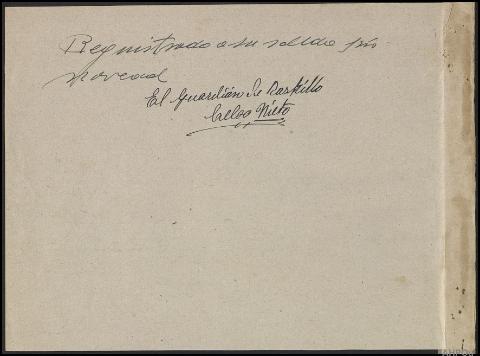 Reguistrado a su salida sin
novedad
El Guardián de Rastrillo
Celso Nieto